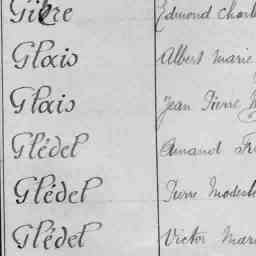 Gibre Edmond Charl
Gloxis Albert Marie
Gloxis Jean Pierre
Glédel Amand
Glédel Pierre Modest
Glédel Victor Mari